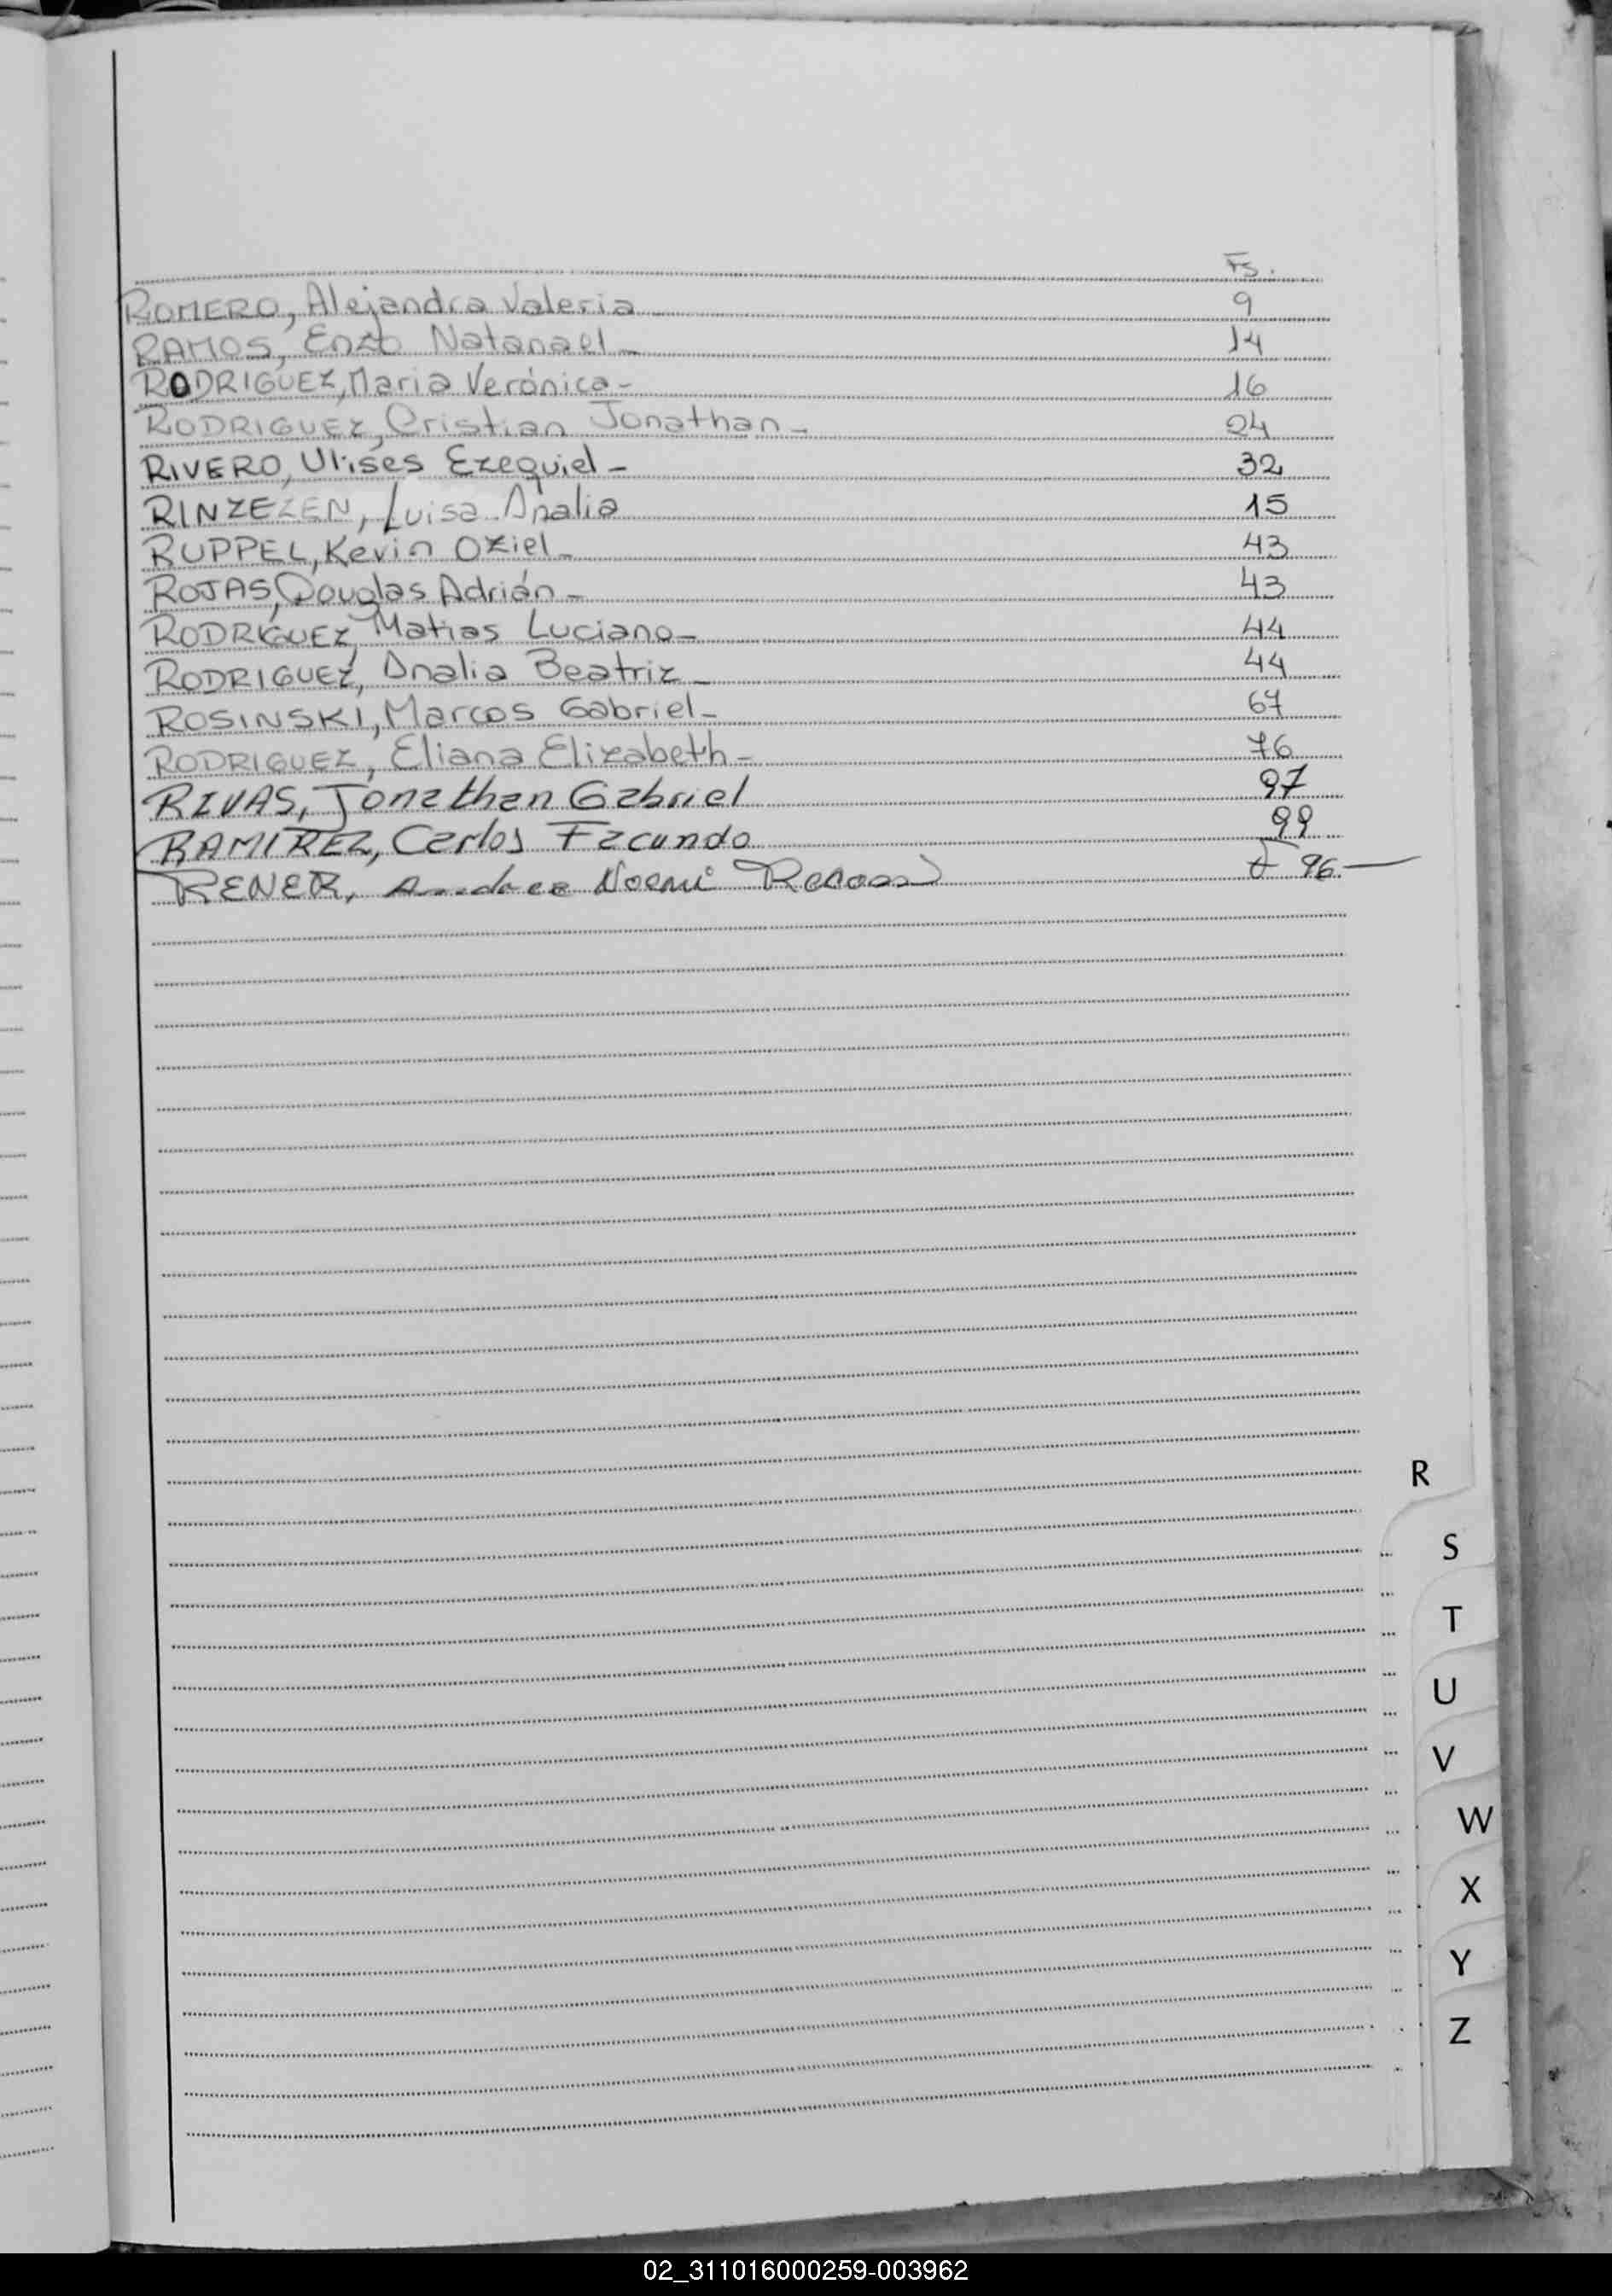 Fs.
ROMERO, Alejandra Valeria 9
RAMOS, Enzo Natanael - 14
RODRIGUEZ, Maria Verónica - 16
RODRIGUEZ, Cristian Jonathan - 24
RIVERO, Ulises Ezequiel - 32
RINZEZEN, Luisa Analia 15
RUPPEL, Kevin Oziel - 43
ROJAS, Douglas Adrián - 43
RODRÍGUEZ, Matias Luciano - 44
RODRIGUEZ, Analia Beatriz - 44
ROSINSKI, Marcos Gabriel - 67
RODRIGUEZ, Eliana Elizabeth - 76
RIVAS, Jonathan Gabriel 97
RAMIREZ, Carlos Facundo 99
RENER, Noemi 96
R
S
T
U
V
W
X
Y
Z
02_311016000259-003962